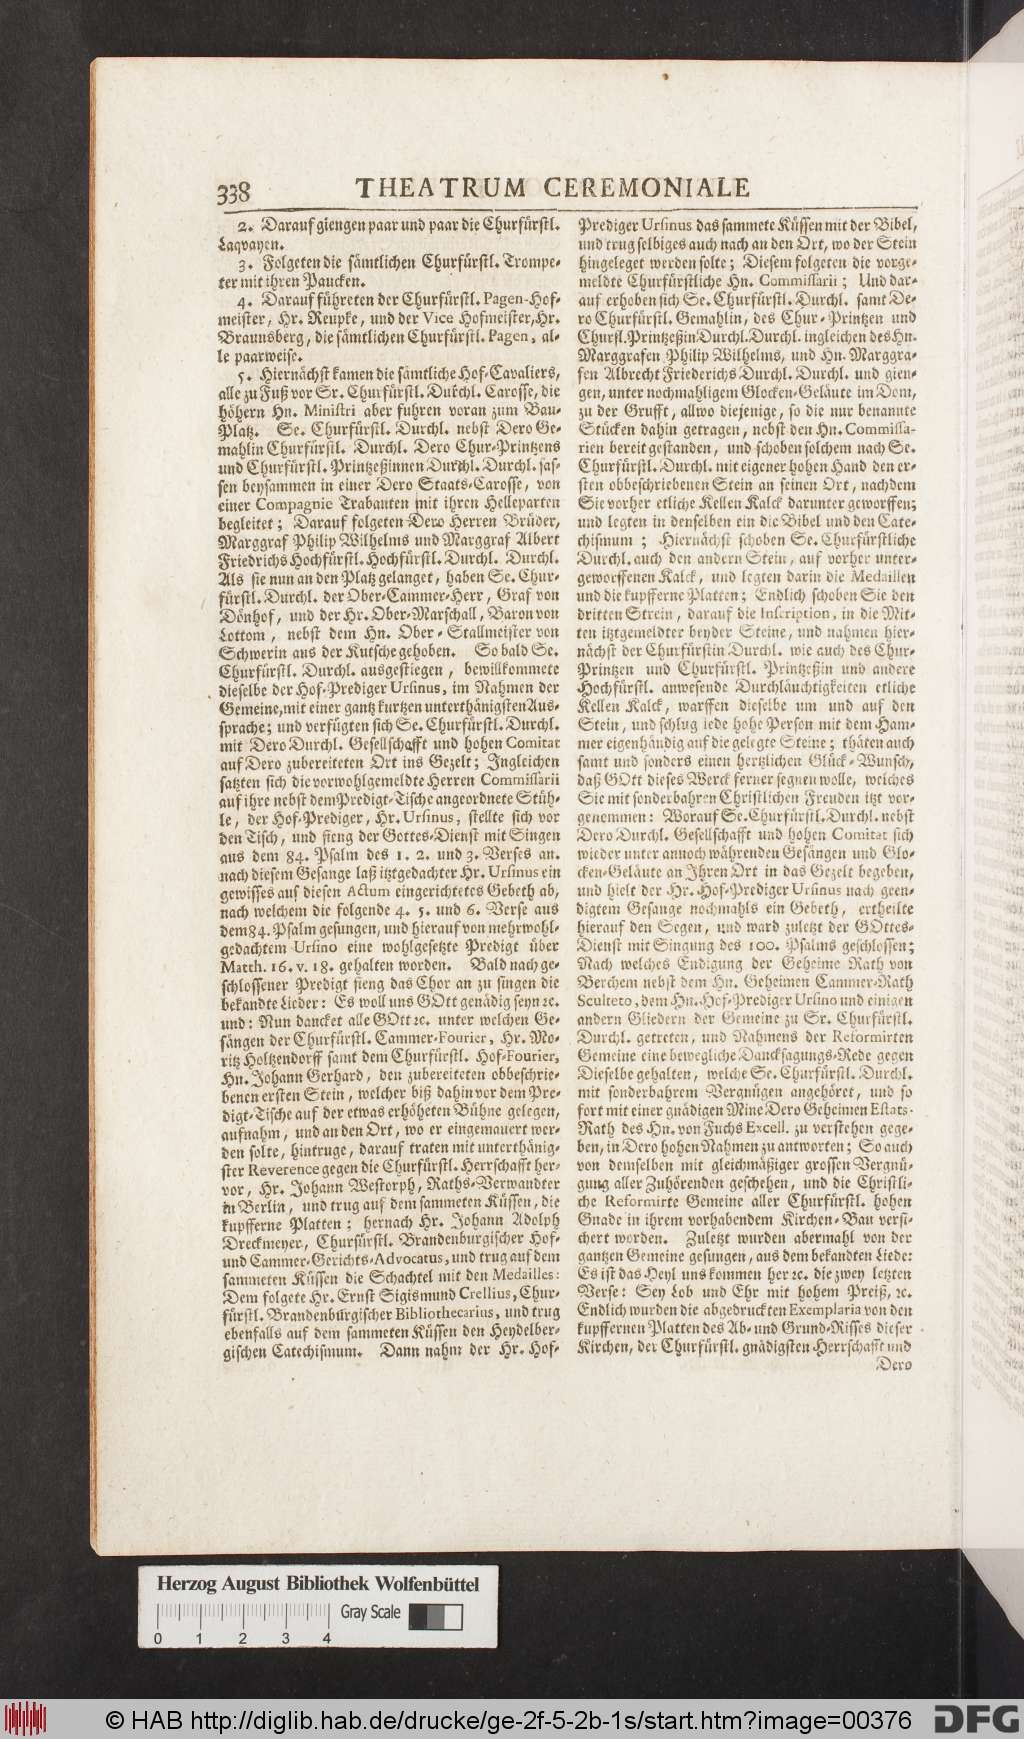 338 THEATRUM CEREMONIALE
2. Darauf giengen paar und paar die Churfürstl.
Laqvayen.
3. Folgeten die sämtlichen Churfürstl. Trompe-
ter mit ihren Paucken.
4. Darauf führeten der Churfürstl. Pagen-Hof-
meister, Hr. Reupke, und der Vice Hofmeister, Hr.
Braunsberg, die sämtlichen Churfürstl. Pagen, al-
le paarweise.
5. Hiernächst kamen die sämtliche Hof-Cavaliers,
alle zu Fuß vor Sr. Churfürstl. Durchl. Carosse, die
höhern Hn. Ministri aber fuhren voran zum Bau-
Platz. Se. Churfürstl. Durchl. nebst Dero Ge-
mahlin Churfürstl. Durchl. Dero Chur-Printzens
und Churfürstl. Printzeßinnen Durchl. Durchl. sas-
sen beysammen in einer Dero Staats-Carosse, von
einer Compagnie Trabanten mit ihren Helleparten
begleitet; Darauf folgeten Dero Herren Brüder,
Marggraf Philip Wilhelms und Marggraf Albert
Friedrichs Hochfürstl. Hochfürstl. Durchl. Durchl.
Als sie nun an den Platz gelanget, haben Se. Chur-
fürstl. Durchl. der Ober-Cammer-Herr, Graf von
Dönhof, und der Hr. Ober-Marschall, Baron von
Lottom, nebst dem Hn. Ober-Stallmeister von
Schwerin aus der Kutsche gehoben. So bald Se.
Churfürstl. Durchl. ausgestiegen, bewillkommete
dieselbe der Hof-Prediger Ursinus, im Nahmen der
Gemeine, mit einer gantz kurtzen unterthänigsten Aus-
sprache; und verfügten sich Se. Churfürstl. Durchl.
mit Dero Durchl. Gesellschafft und hohen Comitat
auf Dero zubereiteten Ort ins Gezelt; Ingleichen
satzten sich die vorwohlgemeldte Herren Commissarii
auf ihre nebst dem Predigt-Tische angeordnete Stüh-
le, der Hof-Prediger, Hr. Ursinus, stellte sich vor
den Tisch, und fieng der Gottes-Dienst mit Singen
aus dem 84. Psalm des 1. 2. und 3. Verses an.
nach diesem Gesange laß itztgedachter Hr. Ursinus ein
gewisses auf diesen Actum eingerichtetes Gebeth ab,
nach welchem die folgende 4. 5. und 6. Verse aus
dem 84. Psalm gesungen, und hierauf von mehrwohl-
gedachtem Ursino eine wohlgesetzte Predigt über
Matth. 16. v. 18. gehalten worden. Bald nach ge-
schlossener Predigt fieng das Chor an zu singen die
bekandte Lieder: Es woll uns GOtt genädig seyn ꝛc.
und: Nun dancket alle GOtt ꝛc. unter welchen Ge-
sängen der Churfürstl. Cammer-Fourier, Hr. Mo-
ritz Holtzendorff samt dem Churfürstl. Hof-Fourier,
Hn. Johann Gerhard, den zubereiteten obbeschrie-
benen ersten Stein, welcher biß dahin vor dem Pre-
digt-Tische auf der etwas erhöheten Bühne gelegen,
aufnahm, und an den Ort, wo er eingemauert wer-
den solte, hintruge, darauf traten mit unterthänig-
ster Reverence gegen die Churfürstl. Herrschafft her-
vor, Hr. Johann Westorph, Raths-Verwandter
in Berlin, und trug auf dem sammeten Küssen, die
kupfferne Platten; hernach Hr. Johann Adolph
Dreckmeyer, Churfürstl. Brandenburgischer Hof-
und Cammer-Gerichts-Advocatus, und trug auf dem
sammeten Küssen die Schachtel mit den Medailles:
Dem folgete Hr. Ernst Sigismund Crellius, Chur-
fürstl. Brandenburgischer Bibliothecarius, und trug
ebenfalls auf dem sammeten Küssen den Heydelber-
gischen Catechismum. Dann nahm der Hr. Hof-
Prediger Ursinus das sammete Küssen mit der Bibel,
und trug selbiges auch nach an den Ort, wo der Stein
hingeleget werden solte; Diesem folgeten die vorge-
meldte Churfürstliche Hn. Commissarii; Und dar-
auf erhoben sich Se. Churfürstl. Durchl. samt De-
ro Churfürstl. Gemahlin, des Chur-Printzen und
Churfl. Printzeßin Durchl. Durchl. ingleichen des Hn.
Marggrafen Philip Wilhelms, und Hn. Marggra-
fen Albrecht Friederichs Durchl. Durchl. und gien-
gen, unter nochmahligem Glocken-Geläute im Dom,
zu der Grufft, allwo diejenige, so die nur benante
Stücken dahin getragen, nebst den Hn. Commissa-
rien bereit gestanden, und schoben solchem nach Se.
Churfürstl. Durchl. mit eigener hohen Hand den er-
sten obbeschriebenen Stein an seinen Ort, nachdem
Sie vorher etliche Kellen Kalck darunter geworffen;
und legten in denselben ein die Bibel und den Cate-
chismum; Hiernächst schoben Se. Churfürstliche
Durchl. auch den andern Stein, auf vorher unter-
geworffenen Kalck, und legten darin die Medaillen
und die kupfferne Platten; Endlich schoben Sie den
dritten Strein, darauf die Inscription, in die Mit-
ten itztgemeldter beyder Steine, und nahmen hier-
nächst der Churfürstin Durchl. wie auch des Chur-
Printzen und Churfürstl. Printzeßin und andere
Hochfürstl. anwesende Durchläuchtigkeiten etliche
Kellen Kalck, warffen dieselbe um und auf den
Stein, und schlug iede hohe Person mit dem Ham-
mer eigenhändig auf die gelegte Steine; thäten auch
samt und sonders einen hertzlichen Glück-Wunsch,
daß GOtt dieses Werck ferner segnen wolle, welches
Sie mit sonderbahren Christlichen Freuden itzt vor-
genommen: Worauf Se. Churfürstl. Durchl. nebst
Dero Durchl. Gesellschafft und hohen Comitat sich
wieder unter annoch währenden Gesängen und Glo-
cken-Geläute an Ihren Ort in das Gezelt begeben,
und hielt der Hr. Hof-Prediger Ursinus nach geen-
digtem Gesange nochmahls ein Gebeth, ertheilte
hierauf den Segen, und ward zuletzt der GOttes-
Dienst mit Singung des 100. Psalms geschlossen;
Nach welches Endigung der Geheime Rath von
Berchem nebst dem Hn. Geheimen Cammer-Rath
Sculteto, dem Hn. Hof-Prediger Ursino und einigen
andern Gliedern der Gemeine zu Sr. Churfürstl.
Durchl. getreten, und Nahmens der Reformirten
Gemeine eine bewegliche Dancksagungs-Rede gegen
Dieselbe gehalten, welche Se. Churfürstl. Durchl.
mit sonderbahrem Vergnügen angehöret, und so
fort mit einer gnädigen Mine Dero Geheimen Estats-
Rath des Hn. von Fuchs Excell. zu verstehen gege-
ben, in Dero hohen Nahmen zu antworten; So auch
von demselben mit gleichmäßiger grossen Vergnü-
gung aller Zuhörenden geschehen, und die Christli-
che Reformirte Gemeine aller Churfürstl. hohen
Gnade in ihrem vorhabendem Kirchen-Bau versi-
chert worden. Zuletzt wurden abermahl von der
gantzen Gemeine gesungen, aus dem bekandten Liede:
Es ist das Heyl uns kommen her ꝛc. die zwey letzten
Verse: Sey Lob und Ehr mit hohem Preiß, ꝛc.
Endlich wurden die abgedruckten Exemplaria von den
kupffernen Platten des Ab- und Grund-Risses dieser
Kirchen, der Churfürstl. gnädigsten Herrschafft und
Dero
Herzog August Bibliothek Wolfenbüttel
Gray Scale
0 1 2 3 4
© HAB http://diglib.hab.de/drucke/ge-2f-5-2b-1s/start.htm?image=00376
DFG